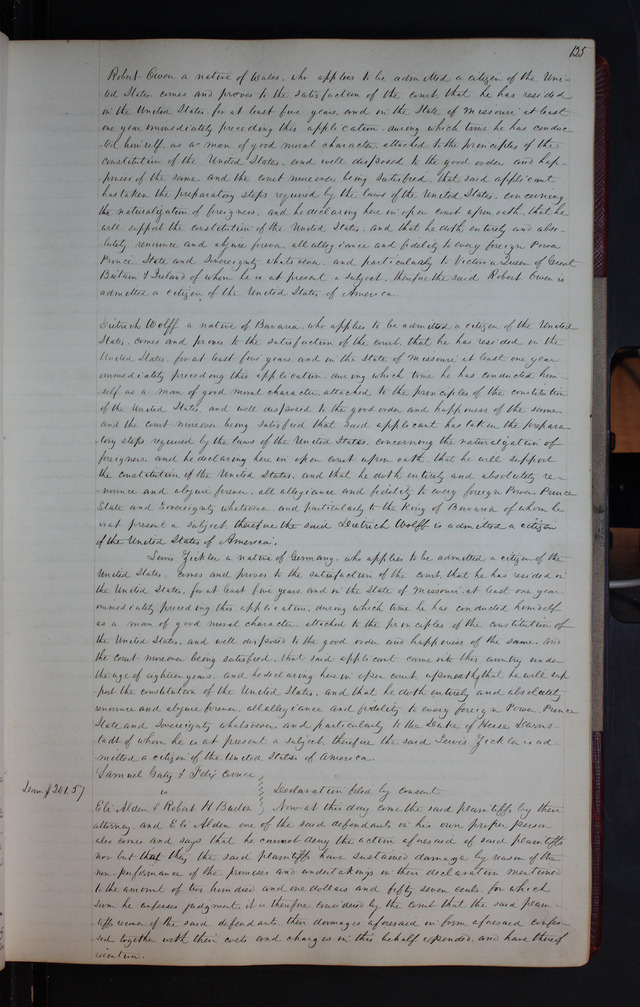 135
Robert Owen a native of Wales, who applies to be admitted a citizen of the Uni-
ted States comes and proves to the satisfaction of the court, that he has resided
in the United States, for at least five years, and in the State of Missouri at least
one year immediately preceding this application, during which time he has conduc-
ted himself as a man of good moral character, attached to the principles of the
constitution of the United States, and well disposed to the good order and hap-
piness of the same, and the court moreover being satisfied, that said applicant
has taken the preparatory steps required by the laws of the United States, concerning
the naturalization of foreigners, and he declaring here in open court upon oath, that he
will support the constitution of the United States, and that he doth entirely and abso-
lutely renounce and abjure forever all allegiance and fidelity to every foreign Power
Prince, State and Sovereignty whatsoever, and particularly to Victoria Queen of Great
Britain & Ireland of whom he is at present a subject, therefore the said Robert Owen is
admitted a citizen of the United States of America.
Dietrich Wolff a native of Bavaria, who applies to be admitted a citizen of the United
States, comes and proves to the satisfaction of the court, that he has resided in the
United States, for at least five years, and in the State of Missouri at least one year
immediately preceding this application, during which time he has conducted him-
self as a man of good moral character, attached to the principles of the constitution
of the United States, and well disposed to the good order and happiness of the same
and the court moreover being satisfied that said applicant has taken the prepara-
tory steps required by the laws of the United States, concerning the naturalization of
foreigners, and he declaring here in open court upon oath, that he will support
the constitution of the United States, and that he doth entirely and absolutely re-
nounce and abjure forever, all allegiance and fidelity to every foreign Power, Prince
State and Sovereignty whatsoever, and particularly to the King of Bavaria of whom he
is at present a subject, therefore the said Dietrich Wolff is admitted a citizen
of the United States of America.
Lewis Zickler a native of Germany, who applies to be admitted a citizen of the
United States, comes and proves to the satisfaction of the court, that he has resided in
the United States, for at least five years, and in the State of Missouri, at least one year
immediately preceding this application, during which time he has conducted himself
as a man of good moral character, attached to the principles of the constitution of
the United States, and well disposed to the good order and happiness of the same, and
the court moreover being satisfied, that said applicant came into this country under
the age of eighteen years, and he declaring here in open court, upon oath, that he will sup
port the constitution of the United States, and that he doth entirely and absolutely
renounce and abjure forever, all allegiance and fidelity to every foreign Power, Prince
State and Sovereignty whatsoever, and particularly to the Duke of Hesse Darms-
tadt of whom he is at present a subject, therefore the said Lewis Zickler is ad-
mitted a citizen of the United States of America.
Samuel Gaty & Felix
Dam $201.57 vs Declaration filed by consent
Eli Alden & Robert H Barlow Now at this day come the said plaintiffs by their
attorney, and Eli Alden one of the said defendants in his own proper person
also comes and says that he cannot deny the action aforesaid of said plaintiffs
nor but that they the said plaintiffs have sustained damage by reason of the
non-performance of the promises and undertakings in their declaration mentioned
to the amount of two hundred and one dollars and fifty seven cents, for which
sum he confesses judgment, it is therefore considered by the court that the said plain-
tiffs recover of the said defendants their damages aforesaid in form aforesaid confes-
sed together with their costs and charges in this behalf expended, and have thereof
execution.